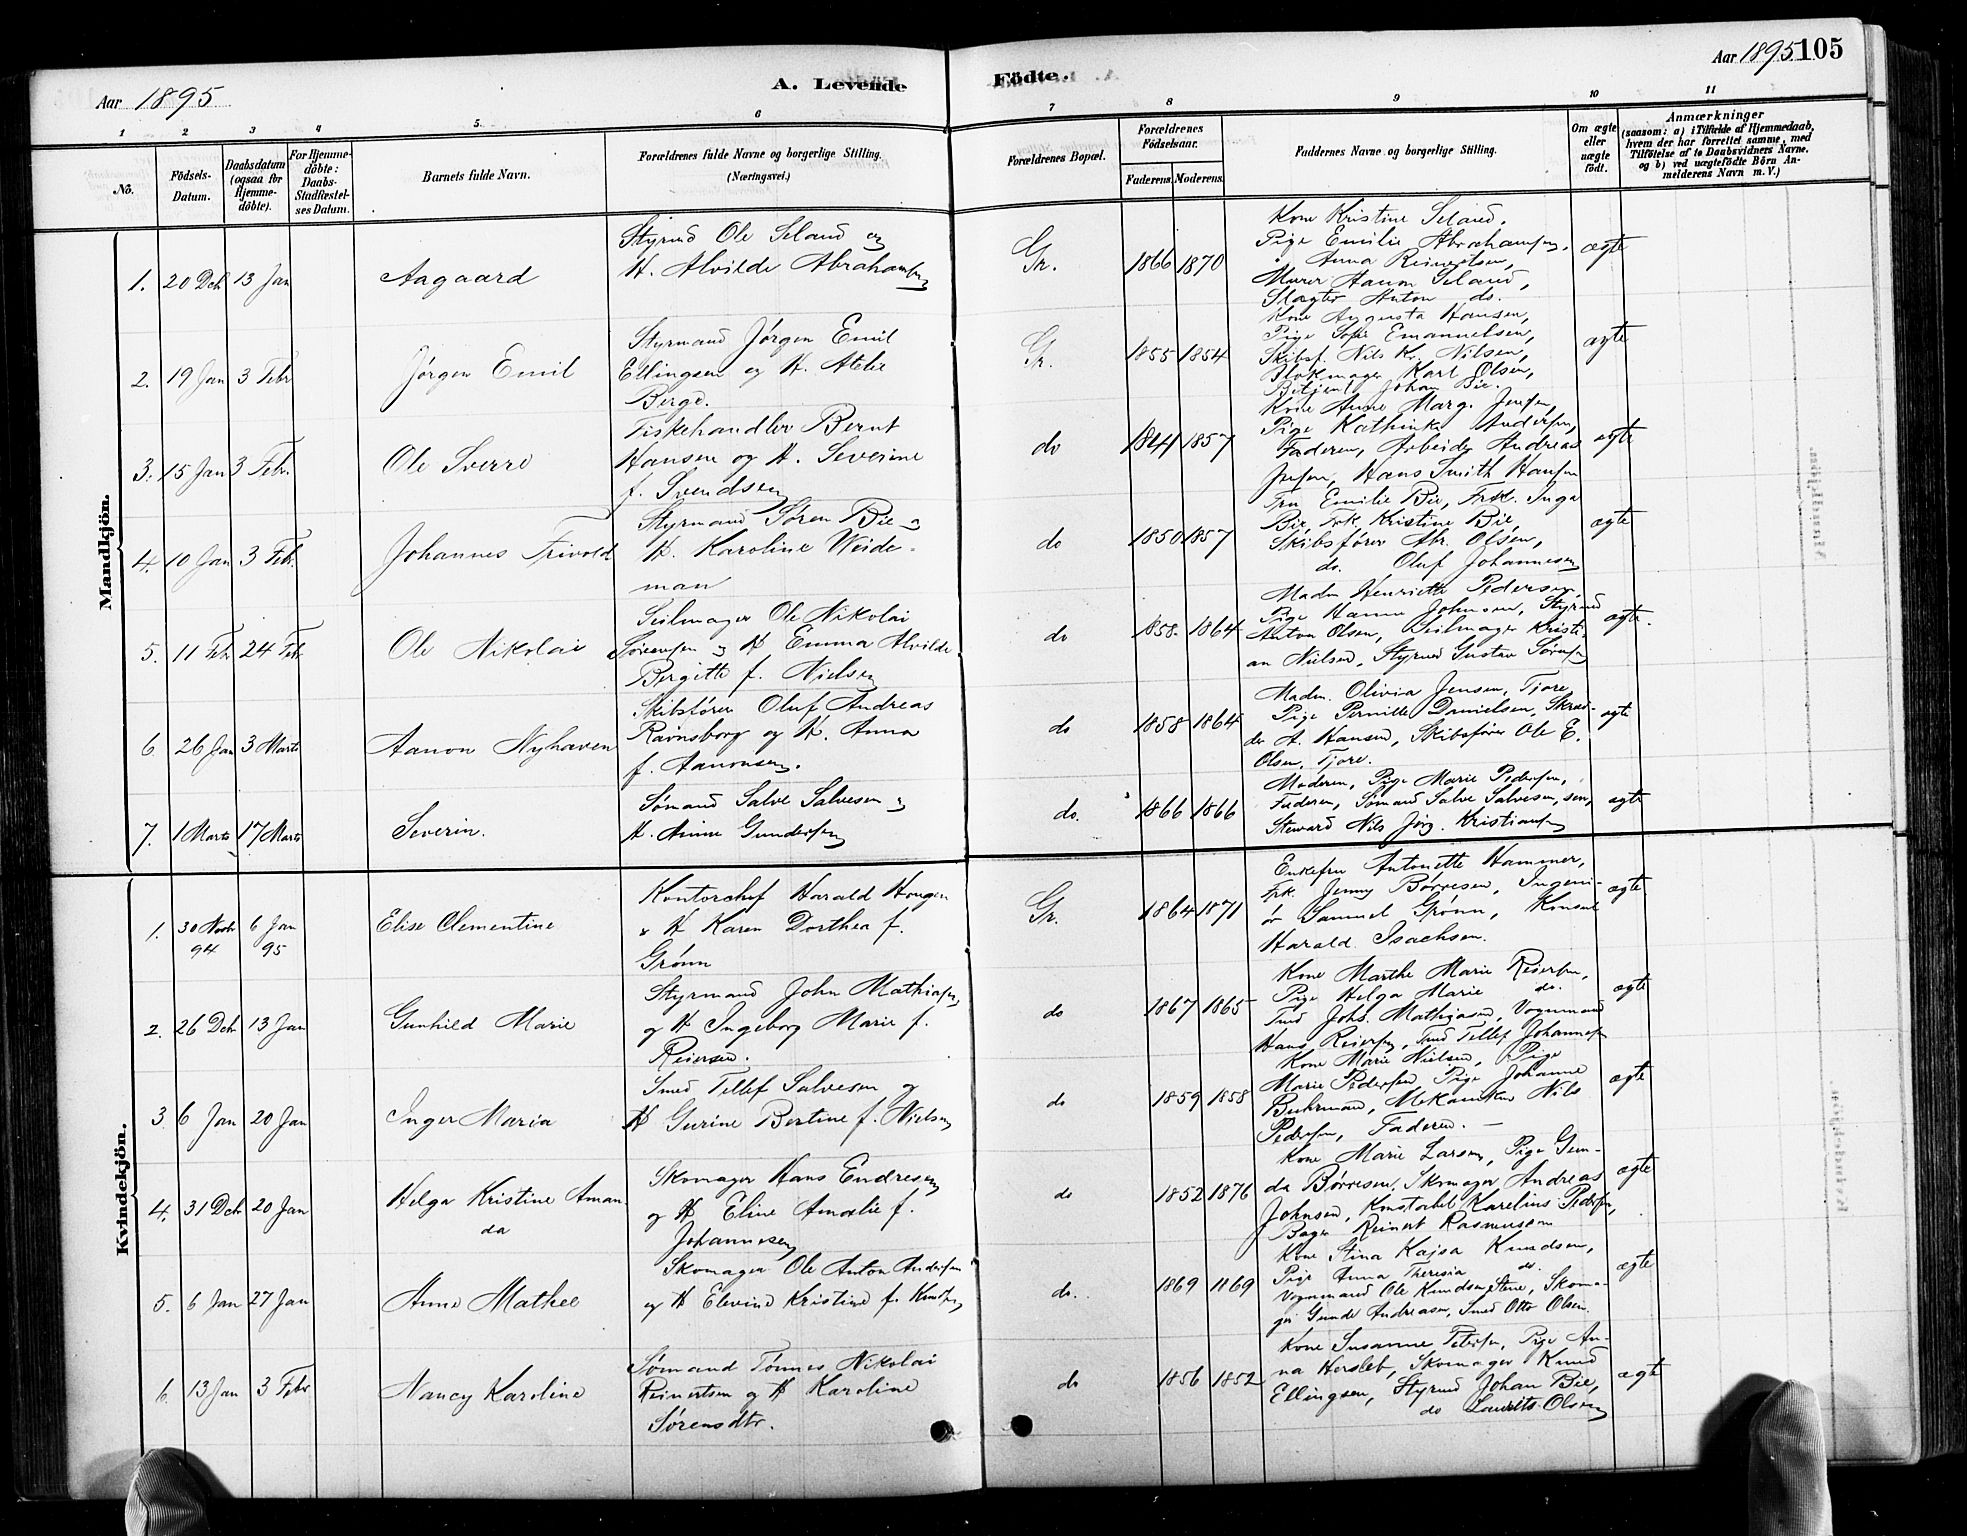 Aar 1895
A. Levende
Födte.
Aar 1895 105
1 2 3 4 5 6 7 8 9 10 11
No.
Födsels-
Datum.
Daabsdatum
(ogsaa for
Hjemme-
döbte).
For Hjemme-
döbte:
Daabs-
Stadfæstel-
ses Datum.
Barnets fulde Navn.
Forældrenes fulde Navne og borgerlige Stilling.
(Næringsvei.)
Forældrenes Bopæl.
Forældrenes
Födselsaar.
Faderens. Moderens.
Faddernes Navne og borgerlige Stilling.
Om ægte
eller
uægte
födt.
Anmærkninger
(saasom: a) i Tilfælde af Hjemmedaab,
hvem der har forrettet samme, med
Tilföielse af to Daabsvidners Navne.
og b) ved uægtefödte Börn An-
melderens Navn m. V.)
Mandkjön.
1. 20 Dcb 13 Jan Aagaard
Styrmd Ole Seland og
H. Alvilde Abrahamsen
Gr. 1866 1870
Kone Kristine Seland,
Pige Emilie Abrahamsen,
Anna Reinertsen,
Murer Aanon Seland,
Slagter Anton do.
ægte
2. 19 Jan 3 Febr Jørgen Emil
Styrmand Jørgen Emil
Ellingsen og H. Atelie
Berge.
Gr. 1855 1854
Kone Augusta Hansen,
Pige Sofie Emanuelsen,
Skibsf. Nils Kr. Nilsen,
Blokmager Karl Olsen,
Betjent Johan Bie.
ægte
3. 15 Jan 3 Febr. Ole Sverre
Fiskehandler Bernt
Hansen og H. Severine
f. Svendsen
do 1844 1857
Kone Anne Marg. Jensen,
Pige Kathinka Andersen,
Faderen, Arbeider Andreas
Jensen, Hans Smith Hansen
ægte
4. 10 Jan 3 Febr. Johannes Trivold
Styrmand Søren Bie og
H. Karoline Weide-
man
do 1850 1857
Fru Emilie Bie, Frk. Inga
Bie, Frk. Kristine Bie,
Skibsfører Abr. Olsen,
do. Oluf Johannesen
ægte
5. 11 Febr 24 Febr Ole Nikolai
Seilmager Ole Nikolai
Sørensen og H Emma Alvilde
Bergitte f. Nielsen
do 1858. 1864
Madm Henriette Pedersen,
Pige Hanna Johnsen, Styrmd
Anton Olsen, Seilmager Kristi-
an Nielsen, Styrmd Gustav Sørensen
ægte.
6 26 Jan 3 Marts Aanon Nyhaven
Skibsfører Oluf Andreas
Ravnsborg og H. Anna
f. Aanonsen.
do 1858 1864
Madm. Olivia Jensen, Fjore
Pige Pernille Danielsen, Skræd-
der A. Hansen, Skibsfører Ole E.
Olsen, Fjore.
ægte
7. 1 Marts 17 Marts Severin.
Sømand Salve Salvesen og
H. Anne Gundersen
do. 1866 1866
Moderen, Pige Marie Pedersen,
Faderen, Sømand Salve Salvesen, sen,
Steward Nils Jørg. Kristiansen
ægte
Kvindekjön.
1. 30 Novb 94 6 Jan 95 Elise Clementine
Kontorchef Harald Hougen
og H Karen Dorthea f.
Grønn
Gr. 1864 1871
Enkefru Antonette Hammer,
Frk. Jenny Børresen, Ingeni-
ør Samuel Grønn, Konsul
Harald Isachsen.
ægte
2. 26 Dcb 13 Jan Gunhild Marie
Styrmand John Mathiasen
og H Ingeborg Marie f.
Reiersen.
do 1867 1865
Kone Marthe Marie Reiersen,
Pige Helga Marie do.
Tmd Johs. Mathiasen, Vognmand
Hans Reiersen, Tmd Tellef Johannesen
ægte
3. 6 Jan 20 Jan Inger Maria
Smed Tellef Salvesen og
H Gurine Bertine f. Nielsen
do 1859 1858
Kone Marie Nielsen, Pige
Marie Pedersen, Pige Johanne
Buhrmand, Mekaniker Nils
Pedersen, Faderen.
ægte
4. 31 Dcb 20 Jan Helga Kristine Aman
da
Skomager Hans Endresen
og H Eline Amalie f.
Johannesen
do 1852 1876
Kone Marie Larsen, Pige Gun-
da Børresen, Skomager Andreas
Johnsen, Konstabel Karelius Pedersen,
Bager Reinert Rasmussen
ægte
5. 6 Jan 27 Jan Anne Mathee
Skomager Ole Anton Andersen
og H Elevine Kristine f. Knudsen
do. 1869 1869
Kone Stina Kajsa Knudsen,
Pige Anna Theresia do.
Vognmand Ole Knudsen Stene, Skoma-
ger Gunder Andreasen, Smed Otto Olsen.
ægte
6. 13 Jan 3 Febr Nancy Karoline
Sømand Tønnes Nikolai
Reinertsen og H Karoline
Sørensdtr.
do 1856 1852
Kone Susanne Petersen, Pige An-
na Hersleb, Skomager Knud
Ellingsen, Styrmd Johan Bie,
do Laurits Olsen
ægte